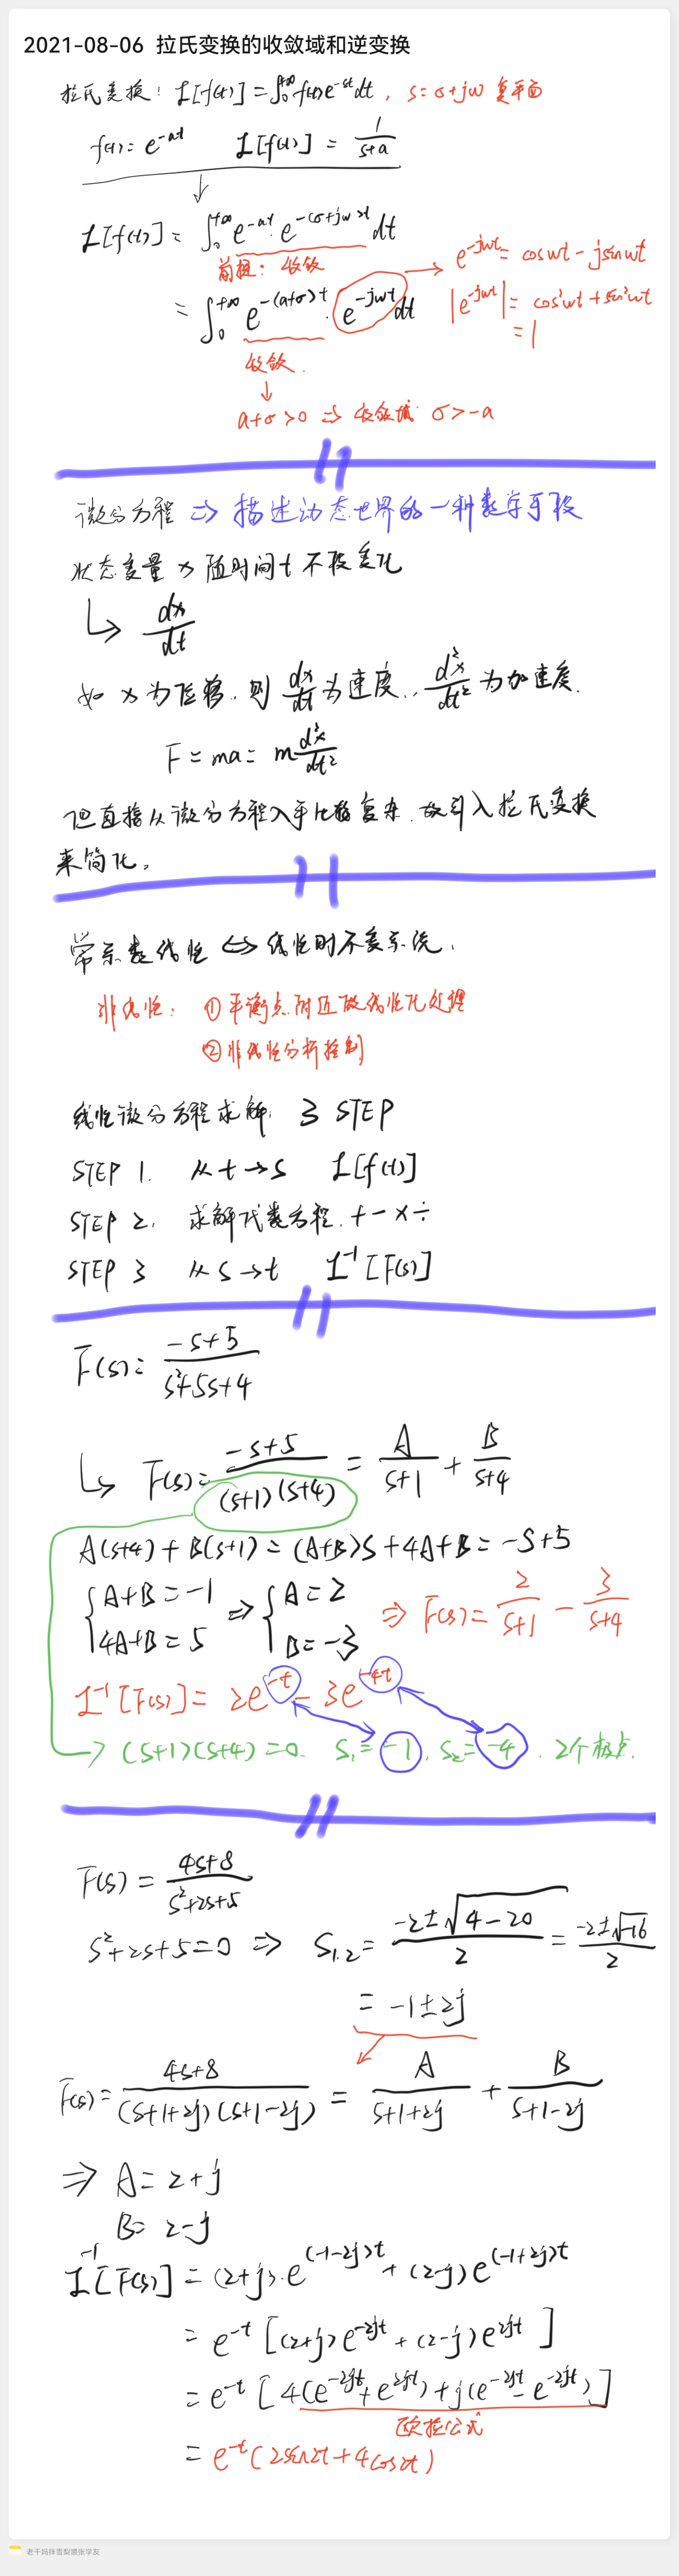 2021-08-06 拉氏变换的收敛域和逆变换
拉氏变换: ℒ[f(t)] = ∫₀^{+∞} f(t)e^{-st}dt, s = σ+jω 复平面
f(t) = e^{-at} ℒ[f(t)] = 1/(s+a)
↓
ℒ[f(t)] = ∫₀^{+∞} e^{-at}·e^{-(σ+jω)t}dt
前提: 收敛
= ∫₀^{+∞} e^{-(a+σ)t}·e^{-jωt}dt
→ e^{-jωt} = cosωt - jsinωt
|e^{-jωt}| = cos²ωt + sin²ωt
= 1
收敛.
↓
a+σ>0 ⇒ 收敛域: σ>-a
微分方程 ⇒ 描述动态世界的一种数学手段
状态变量 x 随时间 t 不段变化
↳ dx/dt
如 x 为位移, 则 dx/dt 为速度, d²x/dt² 为加速度.
F = ma = m d²x/dt²
但直接从微分方程入手比较复杂, 故引入拉氏变换
来简化。
常系数线性 ⇔ 线性时不变系统.
非线性: ① 平衡点附近做线性化处理
② 非线性分析控制
线性微分方程求解: 3 STEP
STEP 1. 从 t→s ℒ[f(t)]
STEP 2. 求解代数方程. + - × ÷
STEP 3 从 s→t ℒ⁻¹[F(s)]
F(s) = (-s+5)/(s²+5s+4)
↳ F(s) = (-s+5)/((s+1)(s+4)) = A/(s+1) + B/(s+4)
A(s+4) + B(s+1) = (A+B)s + 4A+B = -s+5
{A+B = -1, 4A+B = 5 ⇒ {A = 2, B = -3 ⇒ F(s) = 2/(s+1) - 3/(s+4)
ℒ⁻¹[F(s)] = 2e^{-t} - 3e^{-4t}
→ (s+1)(s+4) = 0. s₁ = -1, s₂ = -4. 2个极点.
F(s) = (4s+8)/(s²+2s+5)
s²+2s+5 = 0 ⇒ s₁.₂ = (-2±√(4-20))/2 = (-2±√-16)/2
= -1±2j
F(s) = (4s+8)/((s+1+2j)(s+1-2j)) = A/(s+1+2j) + B/(s+1-2j)
⇒ A = 2+j
B = 2-j
ℒ⁻¹[F(s)] = (2+j)·e^{(-1-2j)t} + (2-j)e^{(-1+2j)t}
= e^{-t}[(2+j)e^{-2jt} + (2-j)e^{2jt}]
= e^{-t}[4(e^{-2jt}+e^{2jt}) + j(e^{-2jt} - e^{-2jt})]
欧拉公式
= e^{-t}(2sin2t + 4cos2t)
老干妈拌雪梨喂张学友